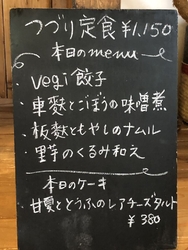 つづり定食 ¥1,150
本日のmenu
・vegi餃子
・車麩とごぼうの味噌煮
・板麩ともやしのナムル
・里芋のくるみ和え
本日のケーキ
・甘夏ととうふのレアチーズタルト
¥380